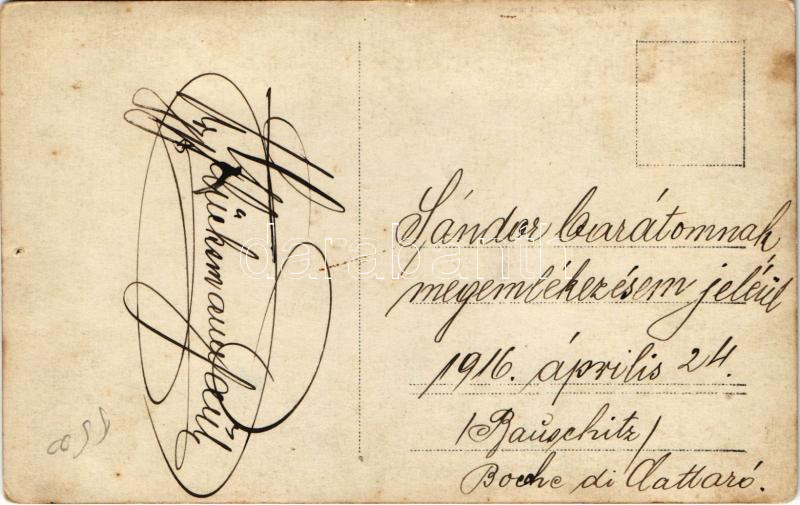 Sándor barátomnak
megemlékezésem jeléül
1916. április 24.
/Rauschitz/
Boche di Cattaró.
darabanth